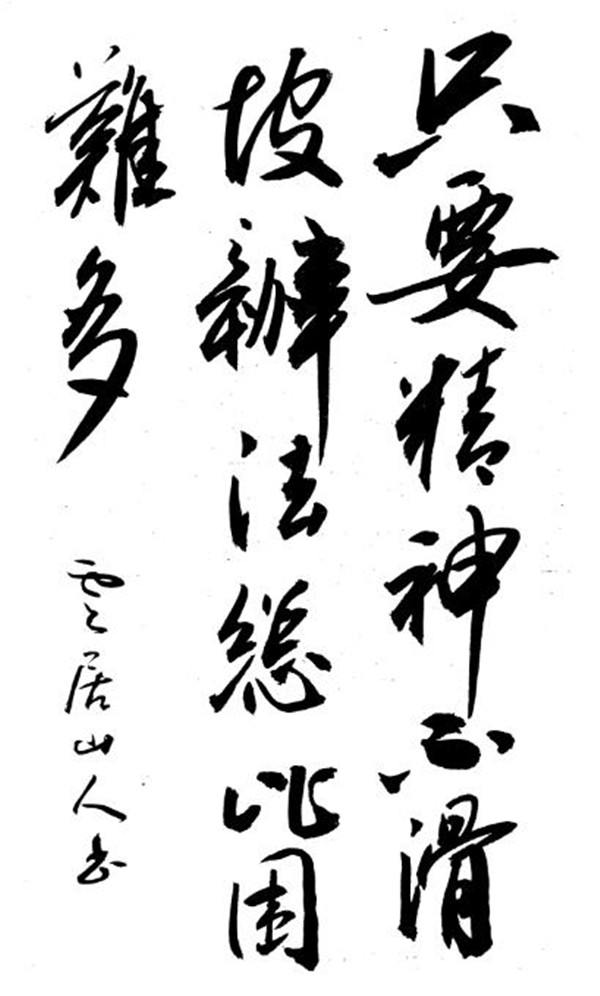 只要精神不滑
坡辦法總比困
難多
雲居山人书